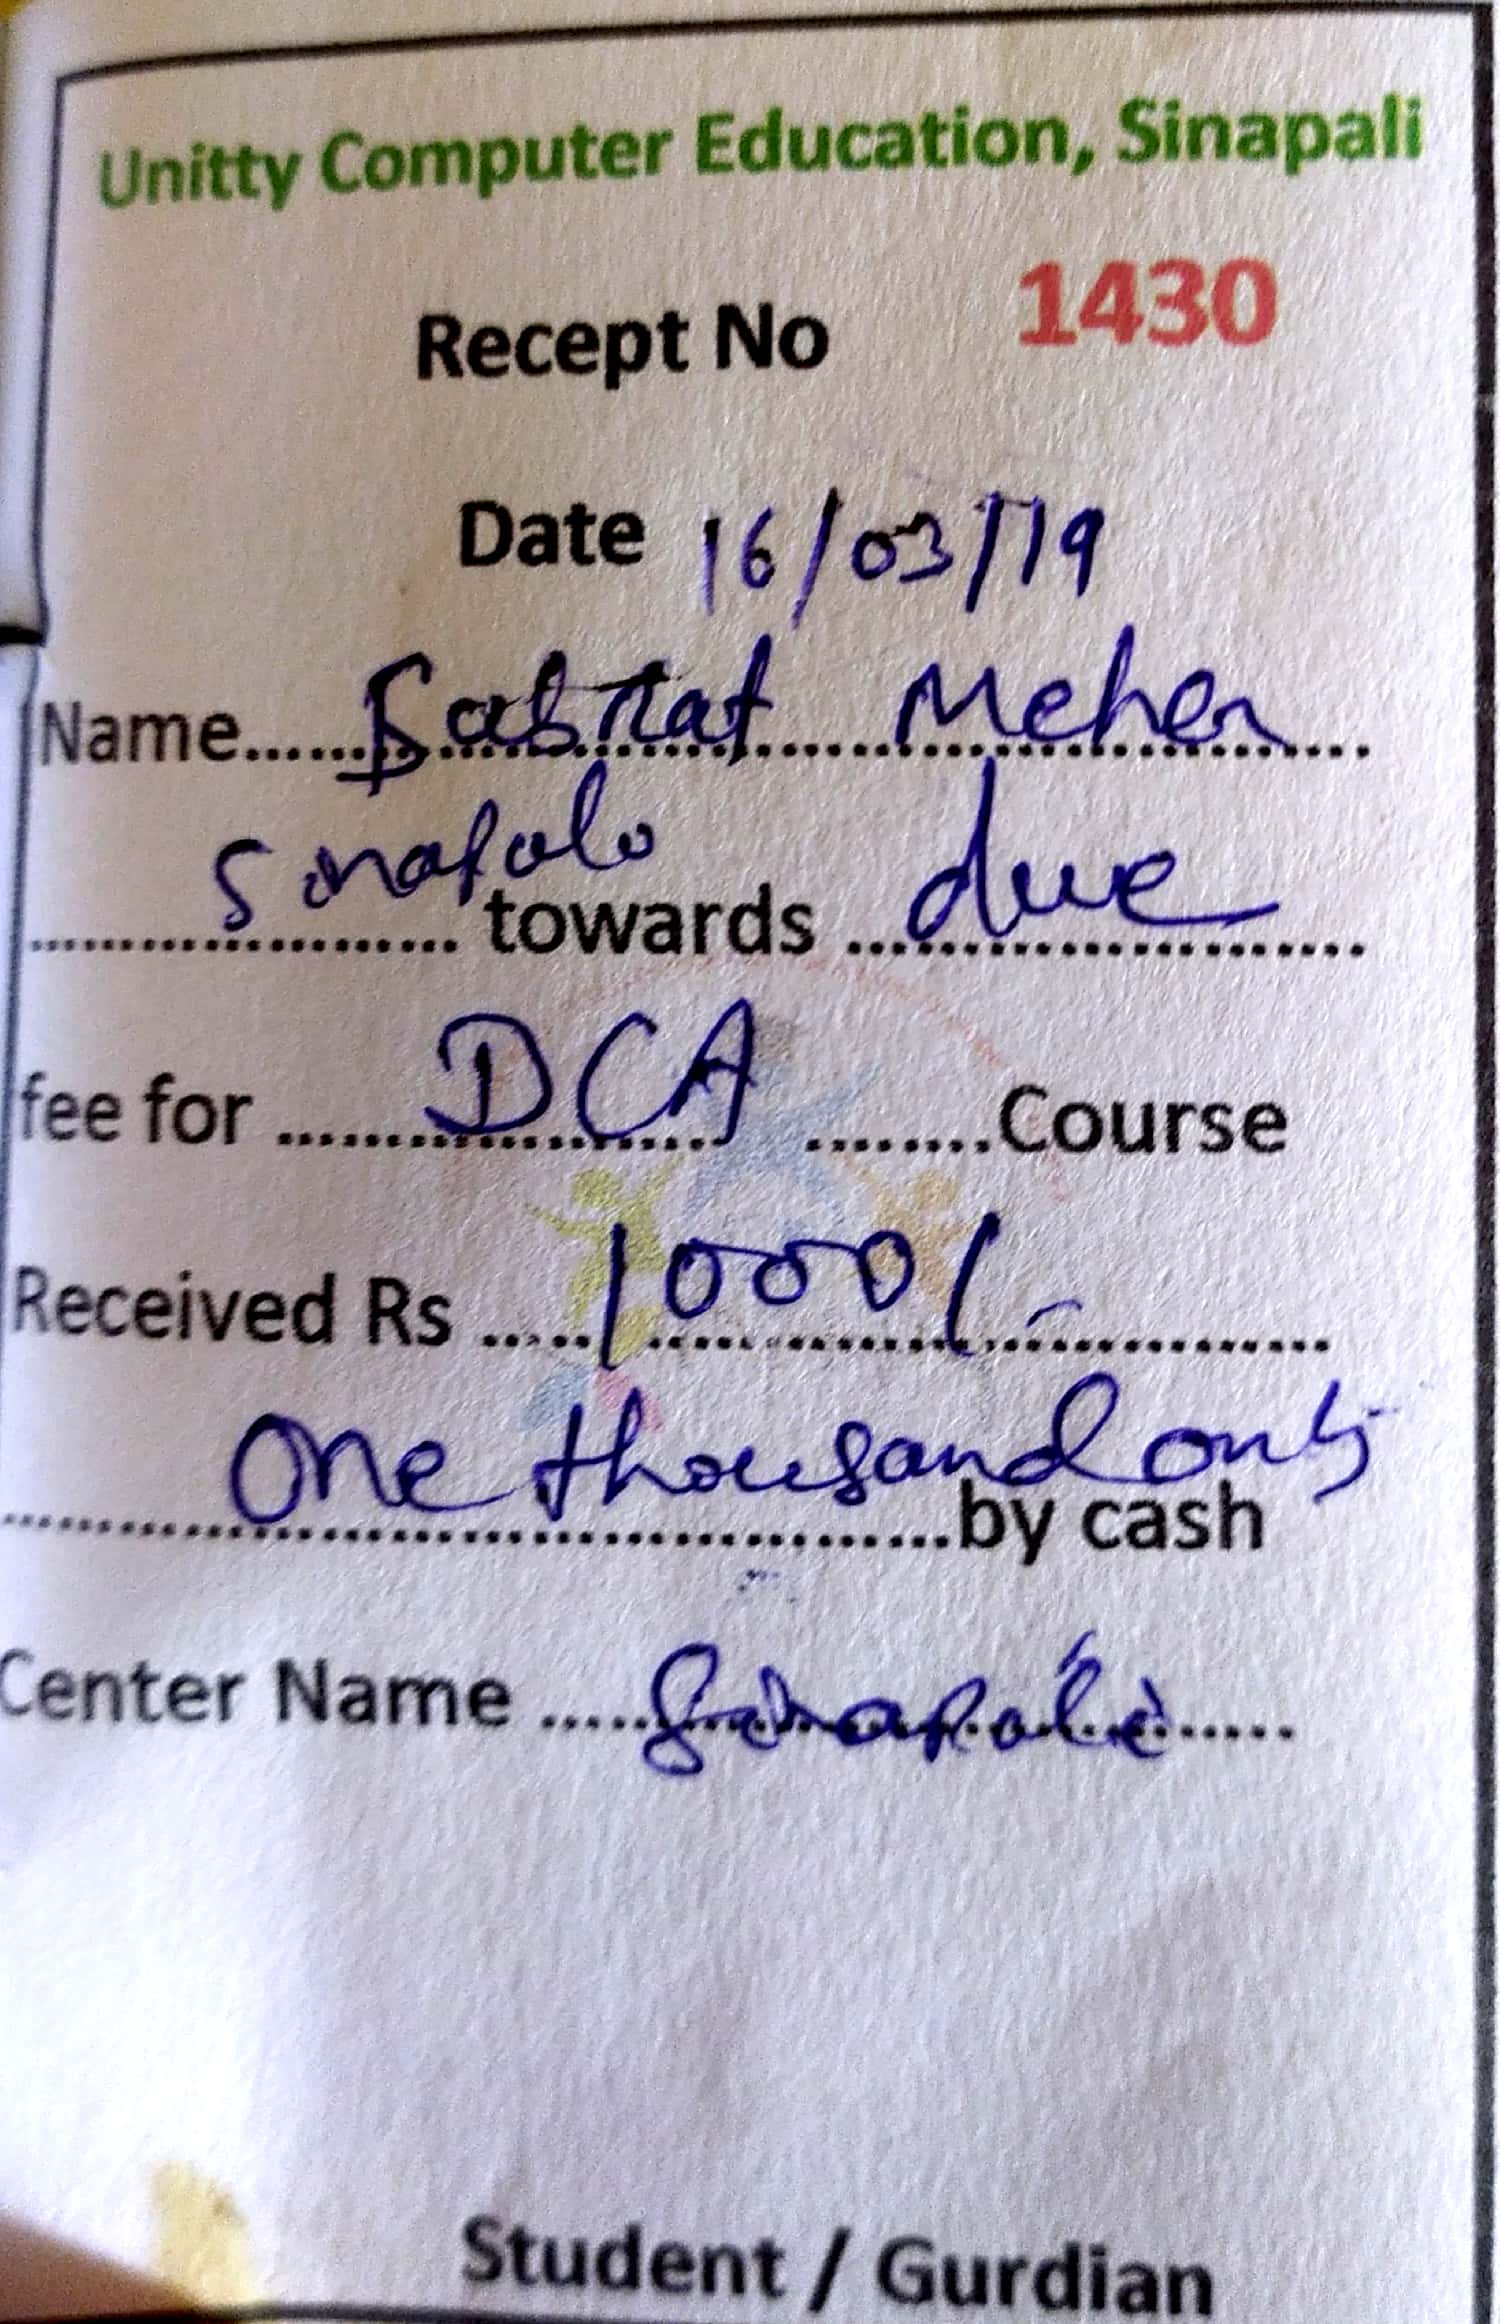 Unitty Computer Education, Sinapali
Recept No 1430
Date 16/03/19
Name...... Sabrat Meher
Sinapali towards due
fee for DCA Course
Received Rs 1000/-
One thousand only
by cash
Center Name Sinapali
Student / Gurdian